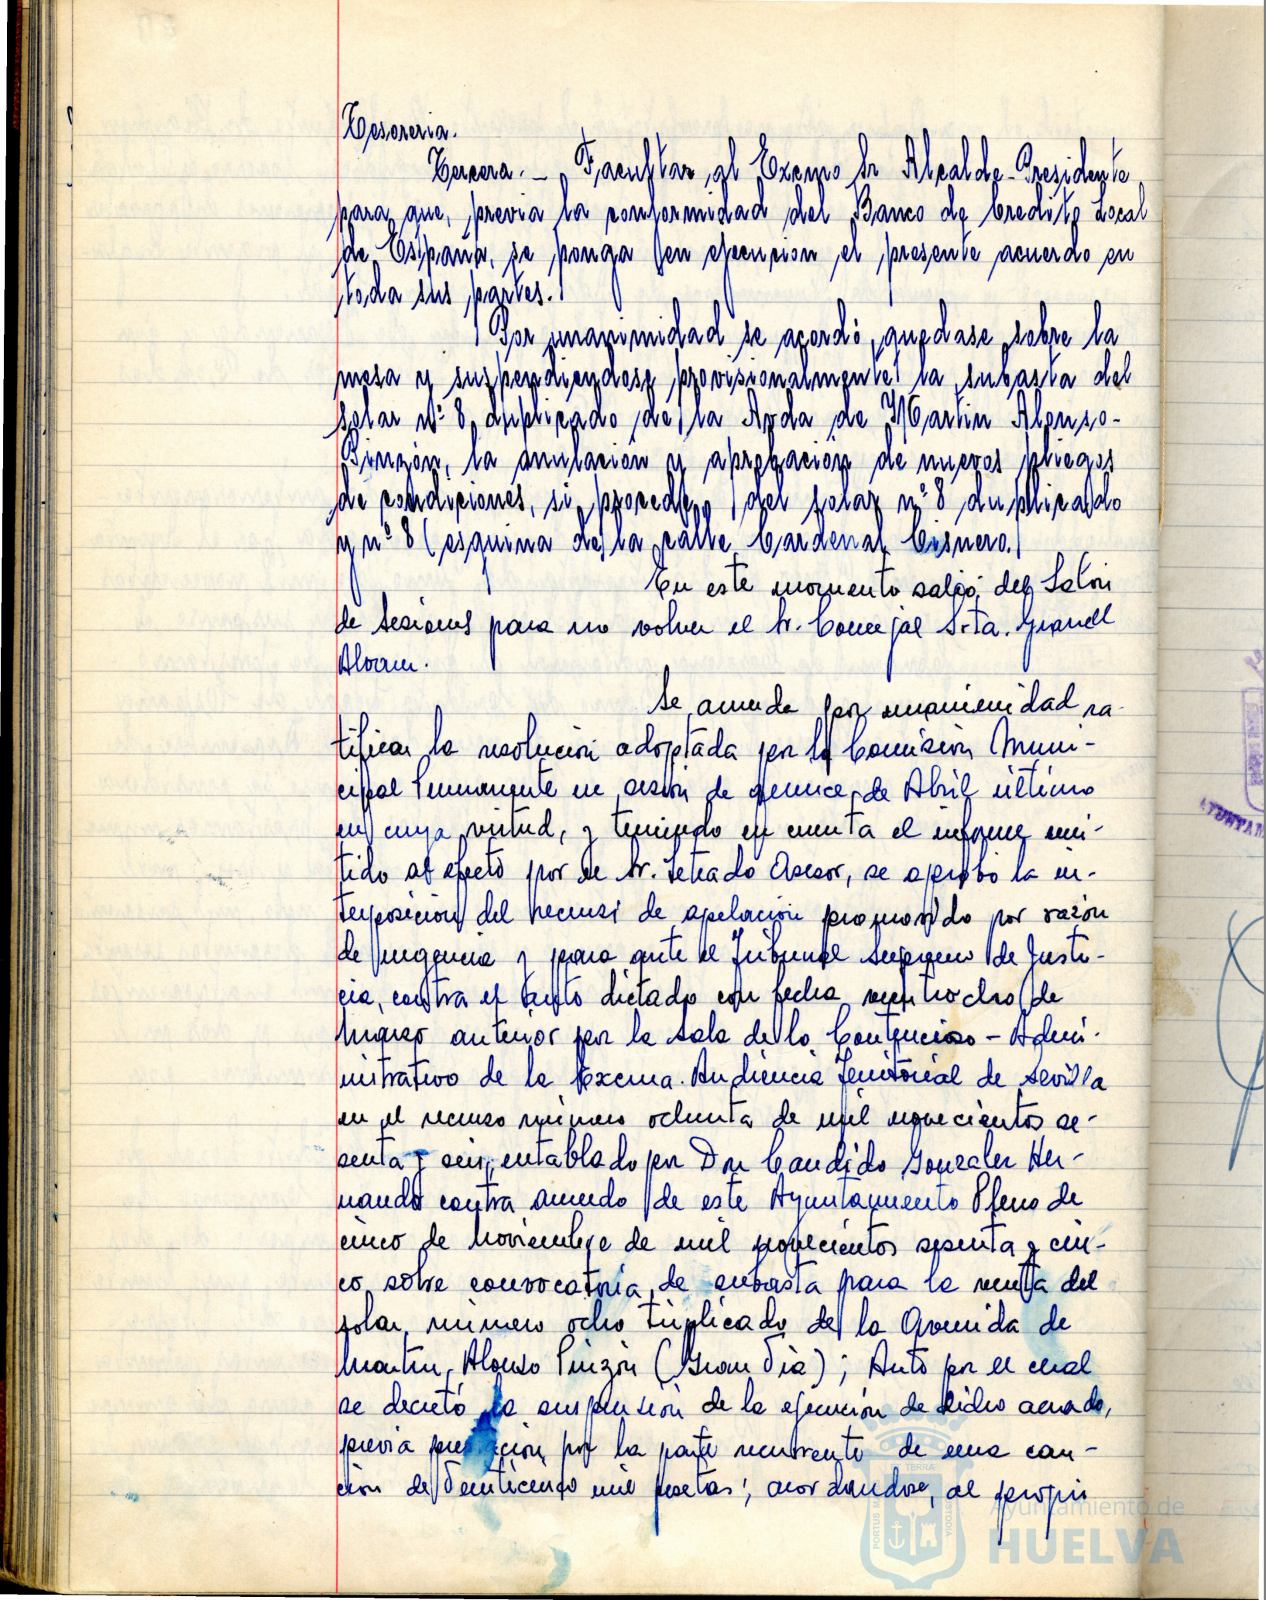 Tesoreria.
Tercera. – Facultar al Excmo Sr Alcalde-Presidente
para que, previa la conformidad del Banco de Credito Local
de España, se ponga en ejecucion el presente acuerdo en
toda sus partes.
Por unanimidad se acordó quedase sobre la
mesa y suspendiendose provisionalmente la subasta del
solar nº 8 duplicado de la Avda de Martin Alonso-
Pinzón, la anulación y aprobación de nuevos pliegos
de condiciones, si procede, del solar nº 8 duplicado
y nº 8 (esquina de la calle Cardenal Cisnero.)
En este momento salió del Salón
de Sesiones para no volver el Sr. Concejal Srta. Granell
Alvarez.
Se acuerda por unanimidad ra-
tificar la resolución adoptada por la Comisión Muni-
cipal Permanente en sesión de quince de Abril último
en cuya virtud, y teniendo en cuenta el informe emi-
tido al efecto por el Sr. Letrado Asesor, se aprobó la in-
terposición del recurso de apelación promovido por razón
de urgencia y para ante el Tribunal Supremo de Justi-
cia, contra el auto dictado con fecha veintiocho de
Marzo anterior por la Sala de lo Contencioso-Admi-
nistrativo de la Excma. Audiencia Territorial de Sevilla
en el recurso número ochenta de mil novecientos se-
senta y seis, entablado por Don Candido Gonzalez Her-
nando contra acuerdo de este Ayuntamiento Pleno de
cinco de Noviembre de mil novecientos sesenta y cin-
co, sobre convocatoria de subasta para la venta del
solar número ocho triplicado de la Avenida de
Martin Alonso Pinzón (Gran Via); Auto por el cual
se decretó la suspensión de la ejecución de dicho acuerdo,
previa prestación por la parte recurrente de una cau-
ción de veinticinco mil pesetas; acordandose, al propi
Ayuntamiento de
HUELVA